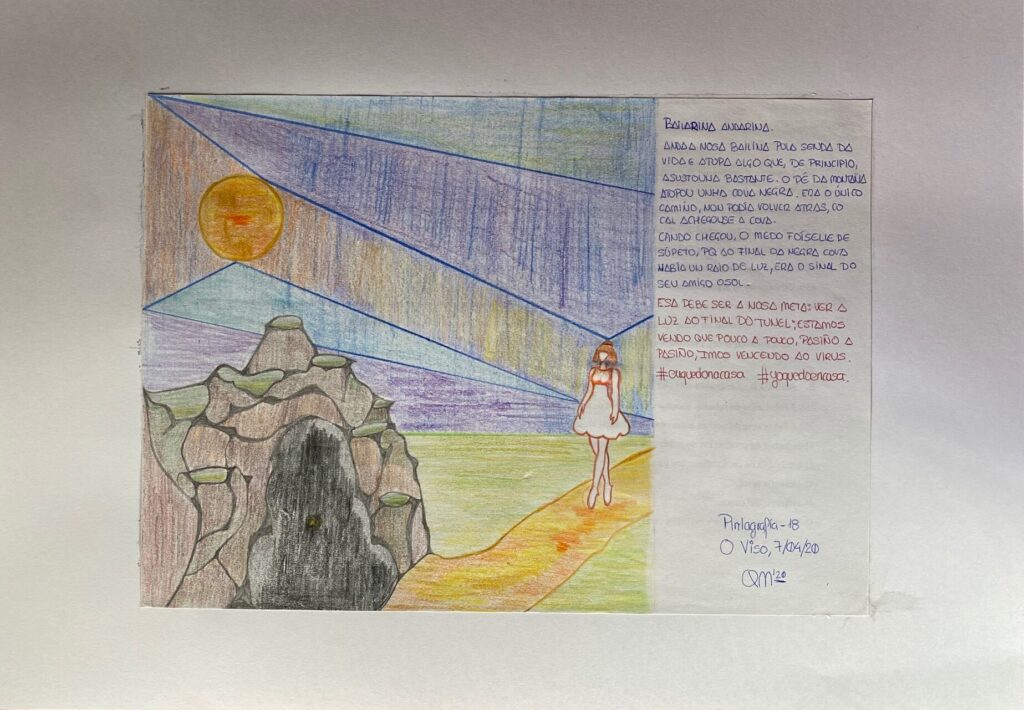 BAILARINA ANDARINA.
ANDA A NOSA BAILINA POLA SENDA DA
VIDA E ATOPA ALGO QUE, DE PRINCIPIO,
ASUSTOUNA BASTANTE. O PÉ DA MONTAÑA
ATOPOU UNHA COVA NEGRA. ERA O ÚNICO
CAMIÑO, NON PODÍA VOLVER ATRAS, CO
CAL ACHEGOUSE A COVA.
CANDO CHEGOU, O MEDO FOÍSELLE DE
SÚPETO, PQ AO FINAL DA NEGRA COVA
HABÍA UN RAIO DE LUZ, ERA O SINAL DO
SEU AMIGO O SOL.
ESA DEBE SER A NOSA META: VER A
LUZ AO FINAL DO TUNEL; ESTAMOS
VENDO QUE POUCO A POUCO, PASIÑO A
PASIÑO, IMOS VENCENDO AO VIRUS.
#euquedonacasa #yoquedoencasa.
Pintagrafía-18
O Viso, 7/04/20
QM'20